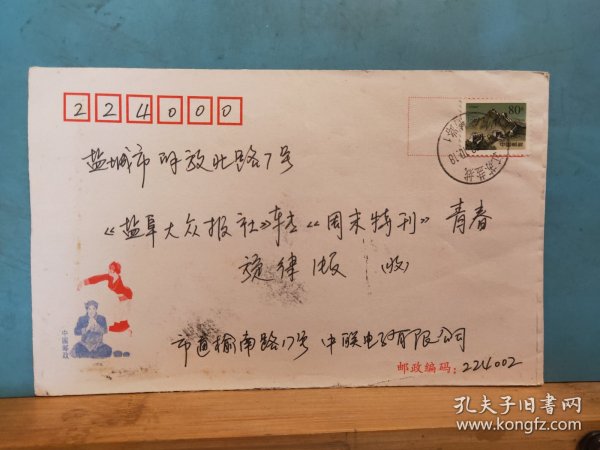 224000
80分
中国邮政
盐城市解放北路7号
《盐阜大众报社》转《周末特刊》青春
旋律版 收
市通榆南路17号 中联电子有限公司
邮政编码：224002
中国邮政
孔夫子旧书网
www.kongfz.com